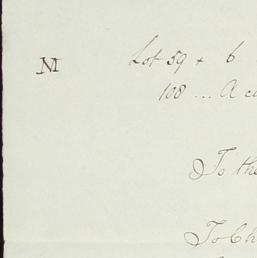 M Lot 59 + 6
108 ... A
To the
To Ch